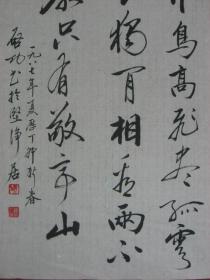 鳥高飛盡孤雲
獨閒相看兩不
只有敬亭山
一九八七年夏曆丁卯新春
啟功書於堅淨居